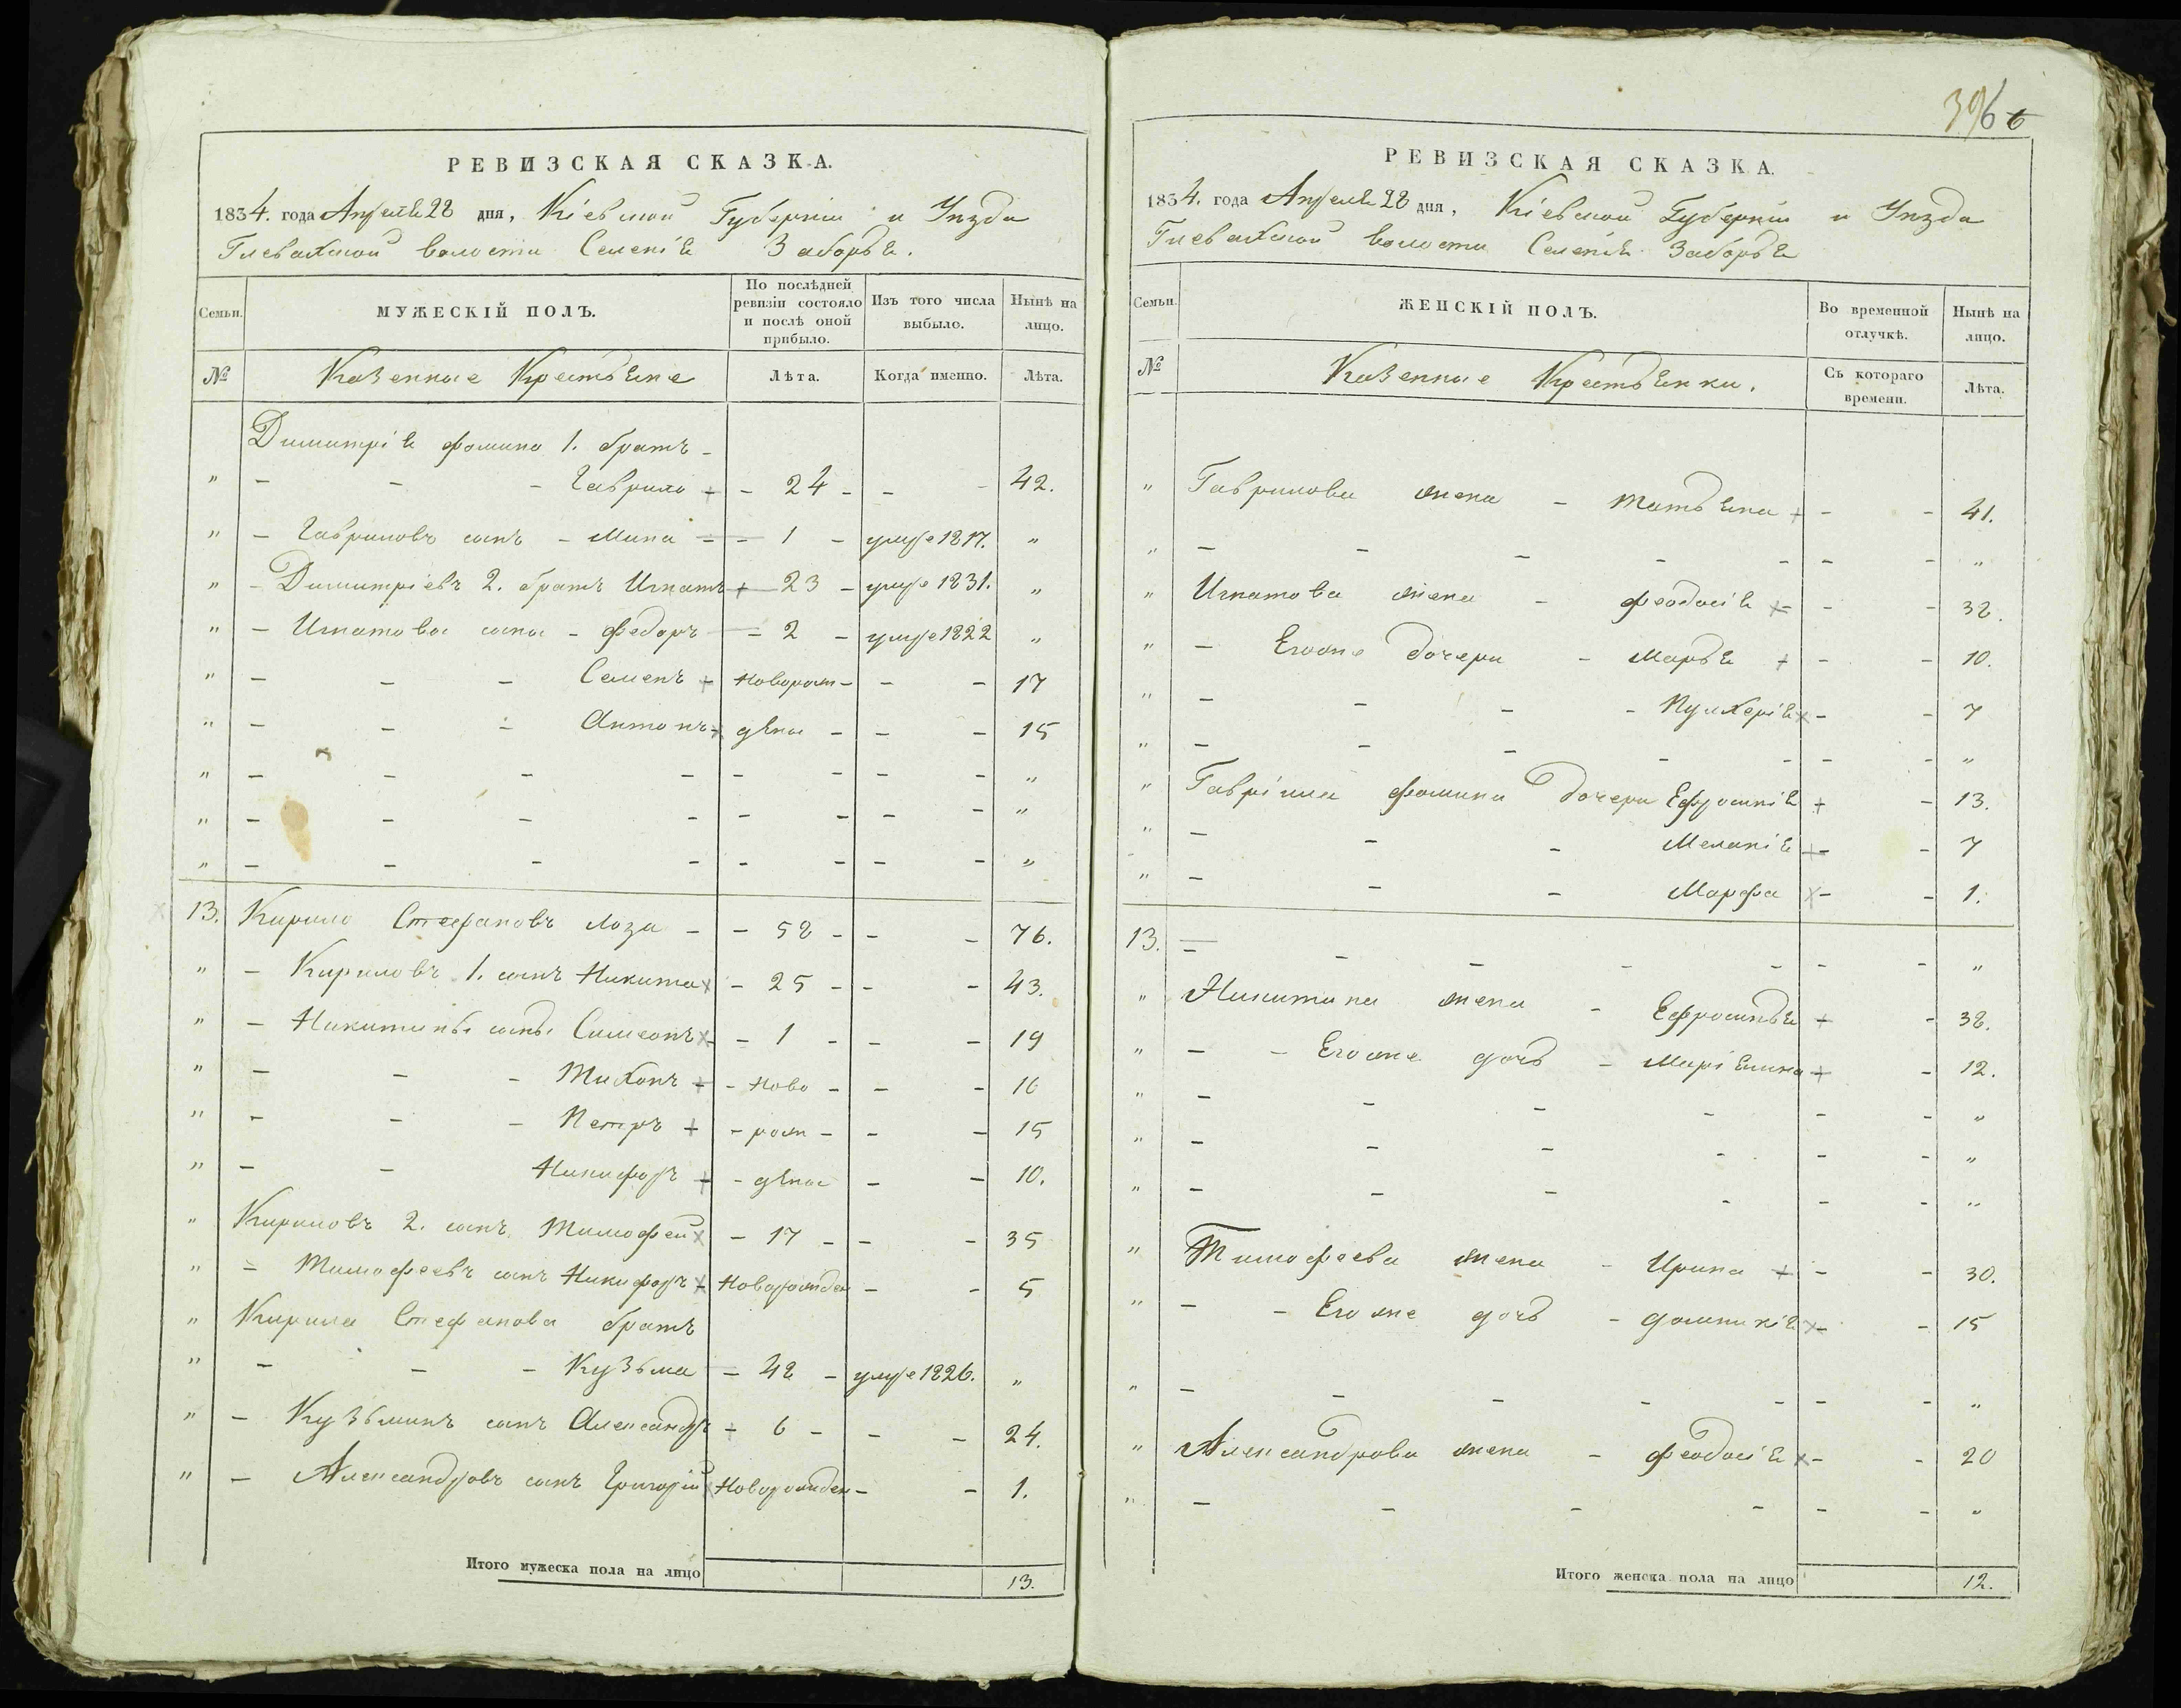 РЕВИЗСКАЯ СКАЗКА.
1834. года Апреля 28 дня, Кіевской Губерніи и Уѣзда
Глевахской волости Селенія Заборья.
Семьи.
МУЖЕСКІЙ ПОЛЪ.
По послѣдней ревизіи состояло и послѣ оной прибыло.
Изъ того числа выбыло.
Нынѣ на лицо.
№ Казенные Крестьяне Лѣта. Когда именно. Лѣта.
Димитрія Фомина 1. братъ -
" - - - Гаврило + - 24 - - - 42.
" - Гавриловъ сынъ - Мина - - 1 - умре 1817. "
" - Димитріевъ 2. братъ Игнатъ + 23 - умре 1831. "
" - Игнатовы сыны - Федоръ - 2 - умре 1822 "
" - - - Семенъ + Новорож - - - 17
" - - - Антонъ х дѣны - - - 15
" - - - - - - - - "
" - - - - - - - - "
" - - - - - - - - "
13. Кирило Стефановъ Лоза - - 58 - - - 76.
" - Кириловъ 1. сынъ Никита х - 25 - - - 43.
" - Никитины сыны Симеонъ х - 1 - - - 19
" - - - Тихонъ + - Ново - - - 16
" - - - Петръ + - рож - - - 15
" - - Никифоръ + - дѣны - - 10.
" Кириловъ 2. сынъ Тимофей х - 17 - - - 35
" - Тимофеевъ сынъ Никифоръ х Новорожден - - 5
" Кирила Стефанова братъ
" - - - Кузьма - 48 - умре 1826. "
" - Кузьминъ сынъ Александръ + 6 - - - 24.
" - Александровъ сынъ Григорій х Новорожден - - 1.
Итого мужеска пола на лицо 13.
396 6
РЕВИЗСКАЯ СКАЗКА.
1834. года Апреля 28 дня, Кіевской Губерніи и Уѣзда
Глевахской волости Селенія Заборья
Семьи.
ЖЕНСКІЙ ПОЛЪ.
Во временной отлучкѣ.
Нынѣ на лицо.
№ Казенные Крестьянки. Съ котораго времени. Лѣта.
" Гаврилова жена - Татьяна + - - 41.
" - - - - - - - "
" Игнатова жена - Феодосія х - - 38.
" - Егоже дочери - Марья + - - 10.
" - - - - Пулхерія х - - 7
" - - - - - - - "
" Гавріила Фомина дочери Ефросинія + - 13.
" - - - Меланія + - - 7
" - - - Марфа х - - 1.
13. - - - - - - - "
" Никитина жена - Ефросинья + - 38.
" - - Егоже дочь - Маріямна + - 12.
" - - - - - - "
" - - - - - - "
" - - - - - - "
" Тимофеева жена - Ирина + - - 30.
" - - Егоже дочь - Домникія х - - 15
" - - - - - - - "
" Александрова жена - Феодосія х - - 20
" - - - - - - "
Итого женска пола на лицо 12.